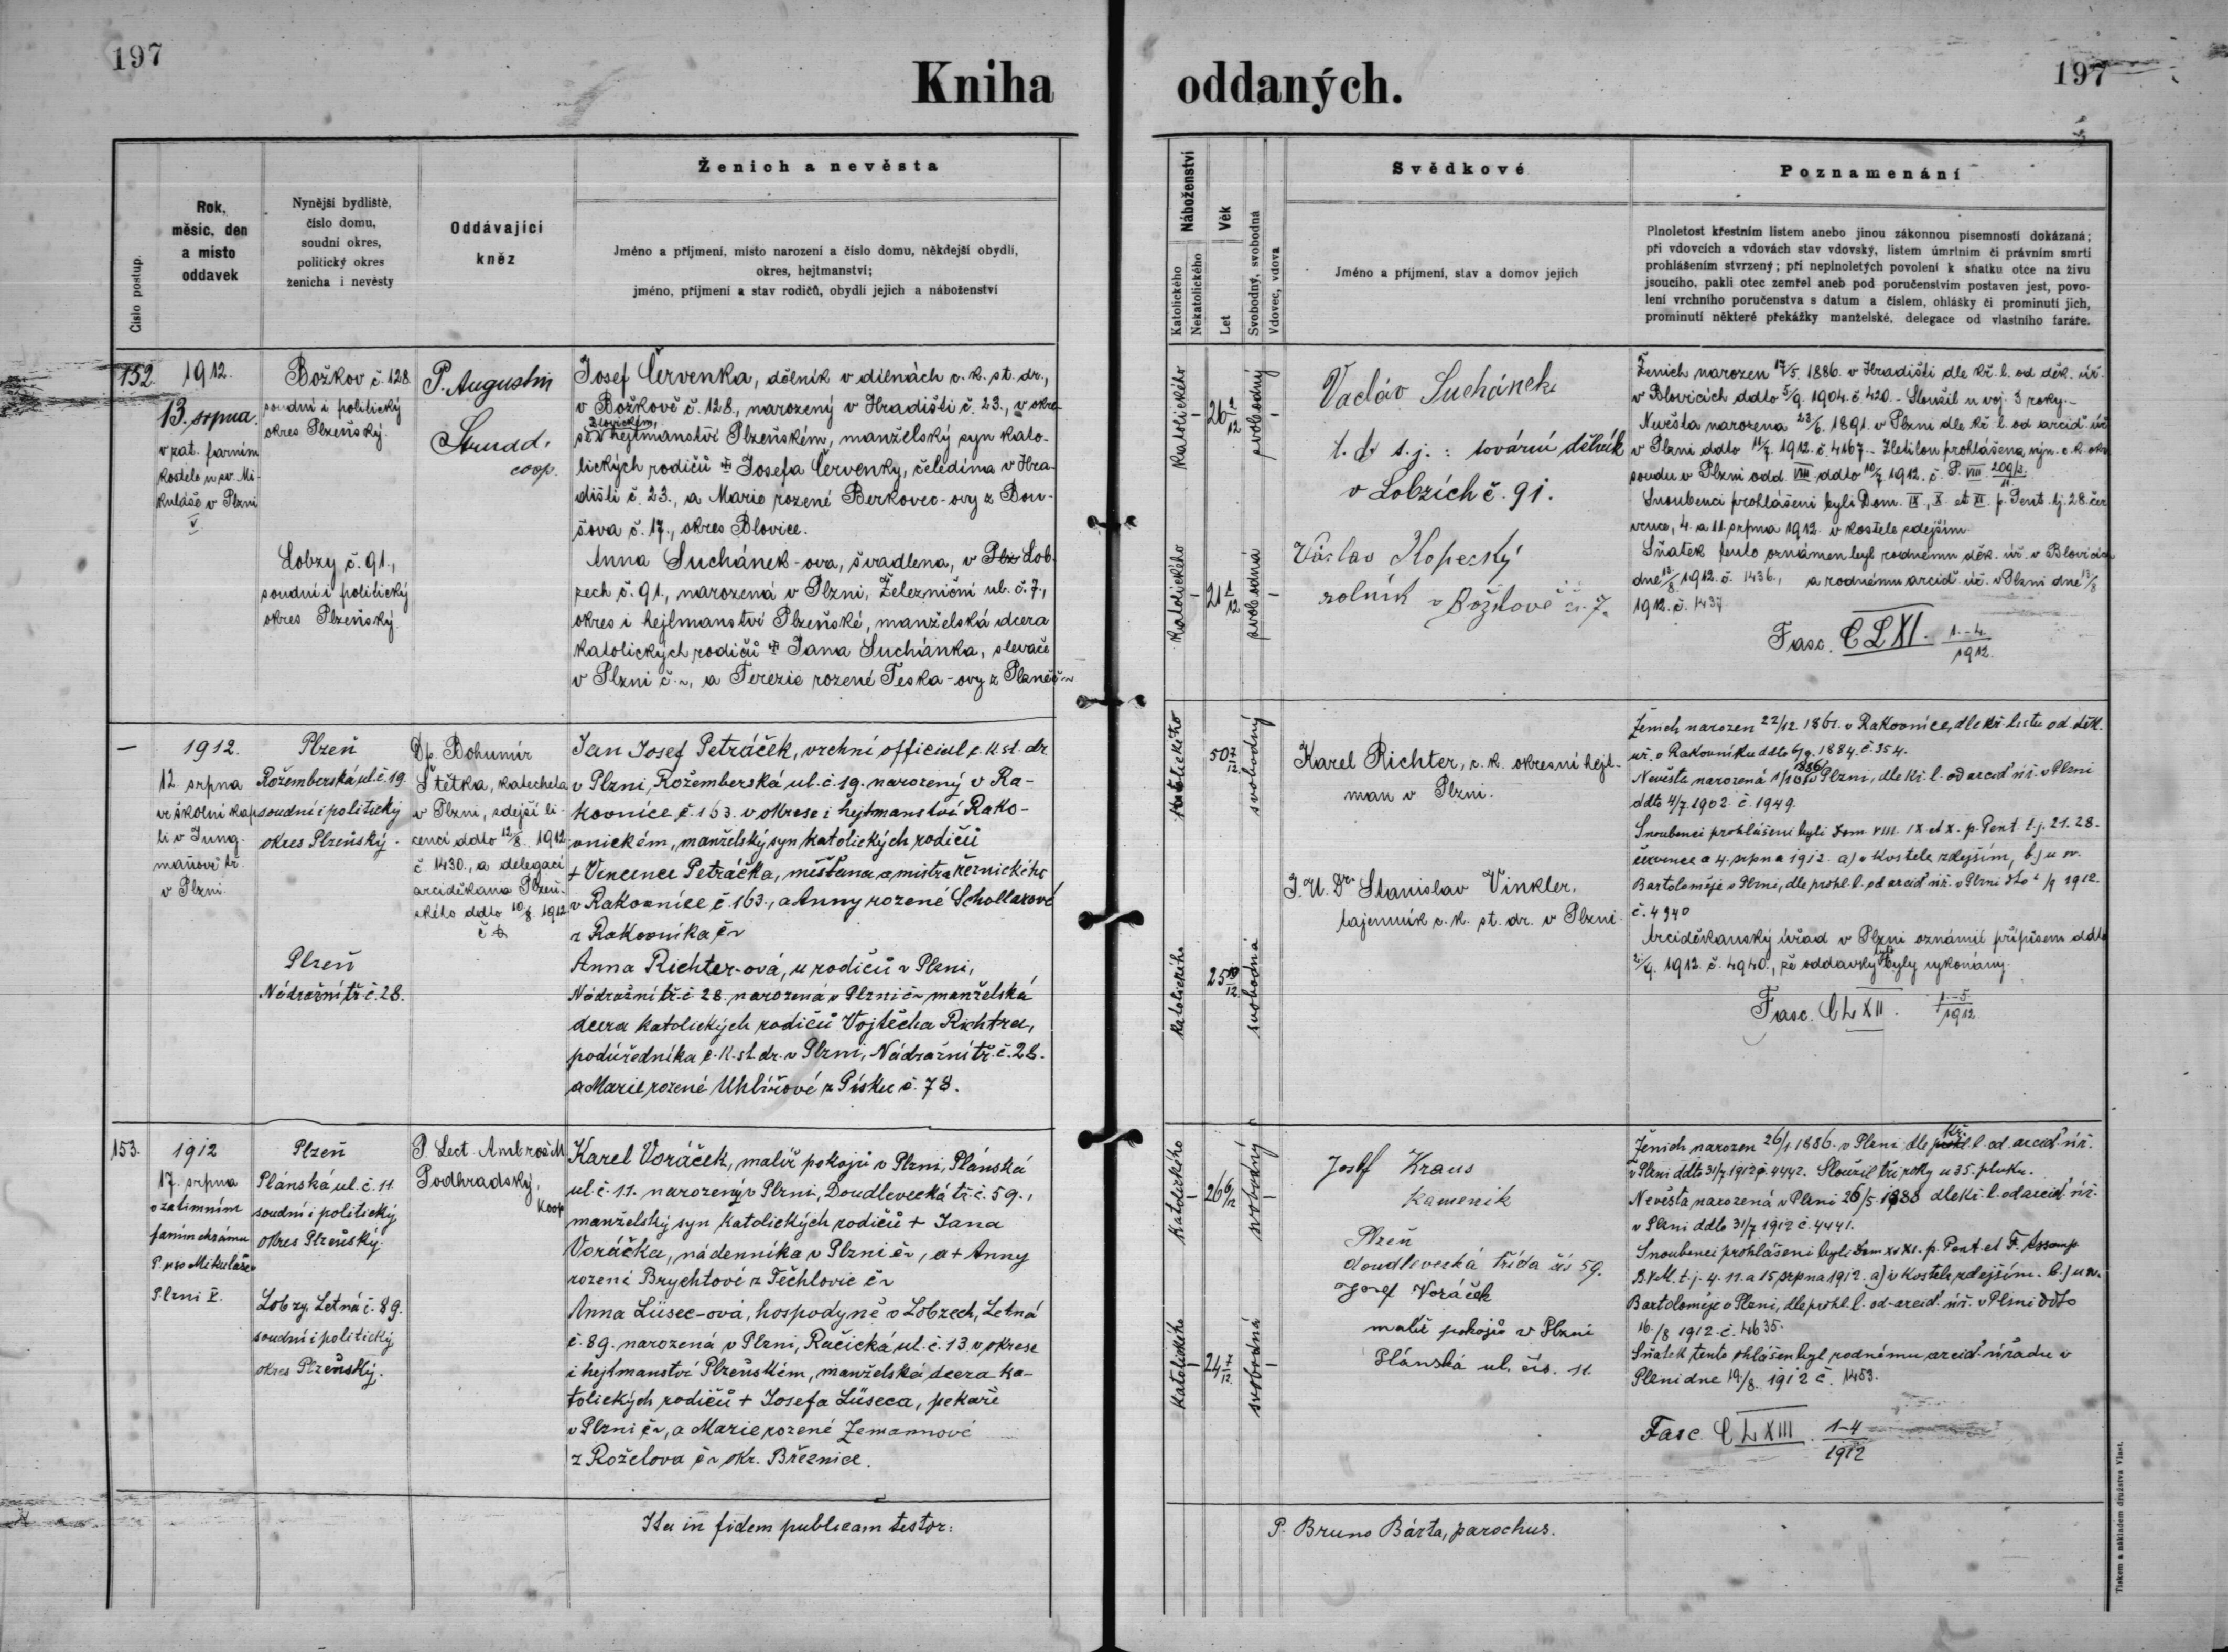 197
Kniha
oddaných.
197
Číslo postup.
Rok,
měsíc, den
a místo
oddavek
Nynější bydliště,
číslo domu,
soudní okres,
politický okres
ženicha i nevěsty
Oddávající
kněz
Ženich a nevěsta
Jméno a příjmení, místo narození a číslo domu, někdejší obydlí,
okres, hejtmanství;
jméno, příjmení a stav rodičů, obydlí jejich a náboženství
Náboženství
Katolického
Nekatolického
Věk
Let
Svobodný, svobodná
Vdovec, vdova
Svědkové
Jméno a příjmení, stav a domov jejich
Poznamenání
Plnoletost křestním listem anebo jinou zákonnou písemností dokázaná;
při vdovcích a vdovách stav vdovský, listem úmrtním či právním smrti
prohlášením stvrzený; při neplnoletých povolení k sňatku otce na živu
jsoucího, pakli otec zemřel aneb pod poručenstvím postaven jest, povo-
lení vrchního poručenstva s datum a číslem, ohlášky či prominutí jich,
prominutí některé překážky manželské, delegace od vlastního faráře.
152.
1912.
13. srpna.
v zat. farním
kostele u sv. Mi-
kuláše v Plzni
V
Božkov č. 128
soudní i politický
okres Plzeňský.
Lobzy č. 91.,
soudní i politický
okres Plzeňský.
P. Augustin
coop.
Josef Červenka, dělník v dílnách c. k. st. dr.,
v Božkově č. 128., narozený v Hradišti č. 23., v okre-
se Blovickém, hejtmanství Plzeňském, manželský syn kato-
lických rodičů + Josefa Červenky, čeledína v Hra-
dišti č. 23., a Marie rozené Berkovec-ovy z Bou-
šova č. 17., okres Blovice.
Anna Suchánek-ova, švadlena, v Plz Lob-
zech č. 91., narozená v Plzni, Železniční ul. č. 7.,
okres i hejtmanství Plzeňské, manželská dcera
katolických rodičů + Jana Suchánka, slevače
v Plzni č. ~, a Terezie rozené Teska-ovy z Plzně č ~
katolického
–
26 2/12
svobodný
–
katolického
–
21 1/12
svobodná
–
Vacláv Suchánek
t. č. s. j. : tovární dělník
v Lobzích č. 91.
Václav Kopecký
rolník v Božkově č. 7.
Ženich narozen 17/5. 1886. v Hradišti dle kř. l. od děk. úř.
v Blovicích ddto 5/9. 1904. č. 420. – Sloužil u voj. 3 roky. –
Nevěsta narozena 23/6. 1891. v Plzni dle kř. l. od arcid úř
v Plzni ddto 11/7. 1912. č. 4167. – Zletilou prohlášena výn. c. k. okr.
soudu v Plzni odd. VIII ddto 10/7. 1912. č. P. VIII 209/2 11.
Snoubenci prohlášeni byli Dom. IX., X. et XI. p. Pent. tj. 28. čer
vence, 4. a 11. srpna 1912. v kostele zdejším.
Sňatek tento oznámen byl rodnému děk. úř. v Blovicích
dne 13/8. 1912. č. 1436., a rodnému arcid úř. v Plzni dne 13/8
1912. č. 1437.
Fasc. CLXI. 1.-4. 1912.
–
1912.
12. srpna
ve školní kap
li v Jung-
mañově tř.
v Plzni.
Plzeň
Rožemberská ul. č. 19
soudní i politický
okres Plzeňský.
Plzeň
Nádražní tř. č. 28.
Dp. Bohumír
Štětka, katecheta
v Plzni, zdejší li-
cencí ddto 12/8. 1912
č. 1430., a delegací
arciděkana Plzeň-
ského ddto 10/8. 1912
Jan Josef Petráček, vrchní official c. k. st. dr
v Plzni, Rožemberská ul. č. 19. narozený v Ra-
kovníce č. 163. v okrese i hejtmanství Rako-
vnickém, manželský syn katolických rodičů
+ Vincence Petráčka, měšťana a mistra řeznického
v Rakovníce č. 163., a Anny rozené Schollarové
z Rakovníka č ~
Anna Richter-ová, u rodičů v Plzni,
Nádražní tř. č 28. narozená v Plzni č ~ manželská
dcera katolických rodičů Vojtěcha Richtra,
podúředníka c. k. st. dr. v Plzni, Nádražní tř. č. 28.
a Marie rozené Uhlířové z Písku č. 78.
Katolického
50 7/12
svobodný
Katolického
25 10/12
svobodná
Karel Richter, c. k. okresní hejt-
man v Plzni.
J. U. Dr. Stanislav Vinkler,
tajemník c. k. st. dr. v Plzni.
Ženich narozen 22/12. 1861. v Rakovnice, dle kř. listu od děk.
úř. v Rakovníku ddto 6/9. 1884. č. 354.
Nevěsta narozená 1/10 1886 v Plzni, dle kř. l. od arcid úř. v Plzni
ddto 4/7. 1902. č. 1949.
Snoubenci prohlášeni byli Dom. VIII. IX et X. p. Pent. t. j. 21. 28.
července a 4. srpna 1912. a) v Kostele zdejším, b) u sv.
Bartoloměje v Plzni, dle prohl. l. od arcid úř. v Plzni ddto /9 1912.
č. 4940
Arciděkanský úřad v Plzni oznámil přípisem ddto
2/9. 1912. č. 4940., že oddavky byly vykonány.
Fasc. CLXII. 1.-5. 1912
153.
1912
17. srpna
v zatimním
farním chrámu
P. u sv Mikuláše v
Plzni V.
Plzeň
Plánská ul. č. 11
soudní i politický
okres Plzeňský.
Lobzy, Letná č. 89.
soudní i politický
okres Plzeňský.
P. Lect. Ambrož M
Podhradský,
Koop
Karel Voráček, malíř pokojů v Plzni, Plánská
ul. č. 11. narozený v Plzni, Doudlevecká tř. č. 59.,
manželský syn katolických rodičů + Jana
Voráčka, nádenníka v Plzni č ~, a + Anny
rozené Brychtové z Těchlovic č ~
Anna Lüsec-ová, hospodyně v Lobzech, Letná
č. 89. narozená v Plzni, Račická ul. č. 13. v okrese
i hejtmanství Plzeňském, manželská dcera ka-
tolických rodičů + Josefa Lüseca, pekaře
v Plzni č ~, a Marie rozené Zemannové
z Roželova č ~ okr. Březnice.
Katolického
–
26 6/12
svobodný
–
Katolického
–
24 2/12
svobodná
–
Josef Kraus
kameník
Plzeň
doudlevecká třída čís 59.
Josef Voráček
malíř pokojů v Plzni
Plánská ul. čís. 11.
Ženich narozen 26/1 1886. v Plzni dle kř. l. od arcid úř.
v Plzni ddto 31/7 1912 č. 4442. Sloužil tři roky u 35. pluku.
Nevěsta narozená v Plzni 26/5 1888 dle kř. l. od arcid úř.
v Plzni ddto 31/7 1912 č. 4441.
Snoubenci prohlášeni byli Dom X. XI. p. Pent. et F. Assump
B.V.M. t. j. 4. 11. a 15 srpna 1912. a) v Kostele zdejším. b.) u sv.
Bartoloměje v Plzni, dle prohl. l. od arcid úř. v Plzni ddto
16./8 1912. č. 4635.
Sňatek tento ohlášen byl rodnému arcid úřadu v
Plzni dne 19./8. 1912 č. 1453.
Fasc. CLXIII. 1-4 1912
Ita in fidem publicam testor:
P. Bruno Bárta, parochus.
Tiskem a nákladem družstva Vlast.